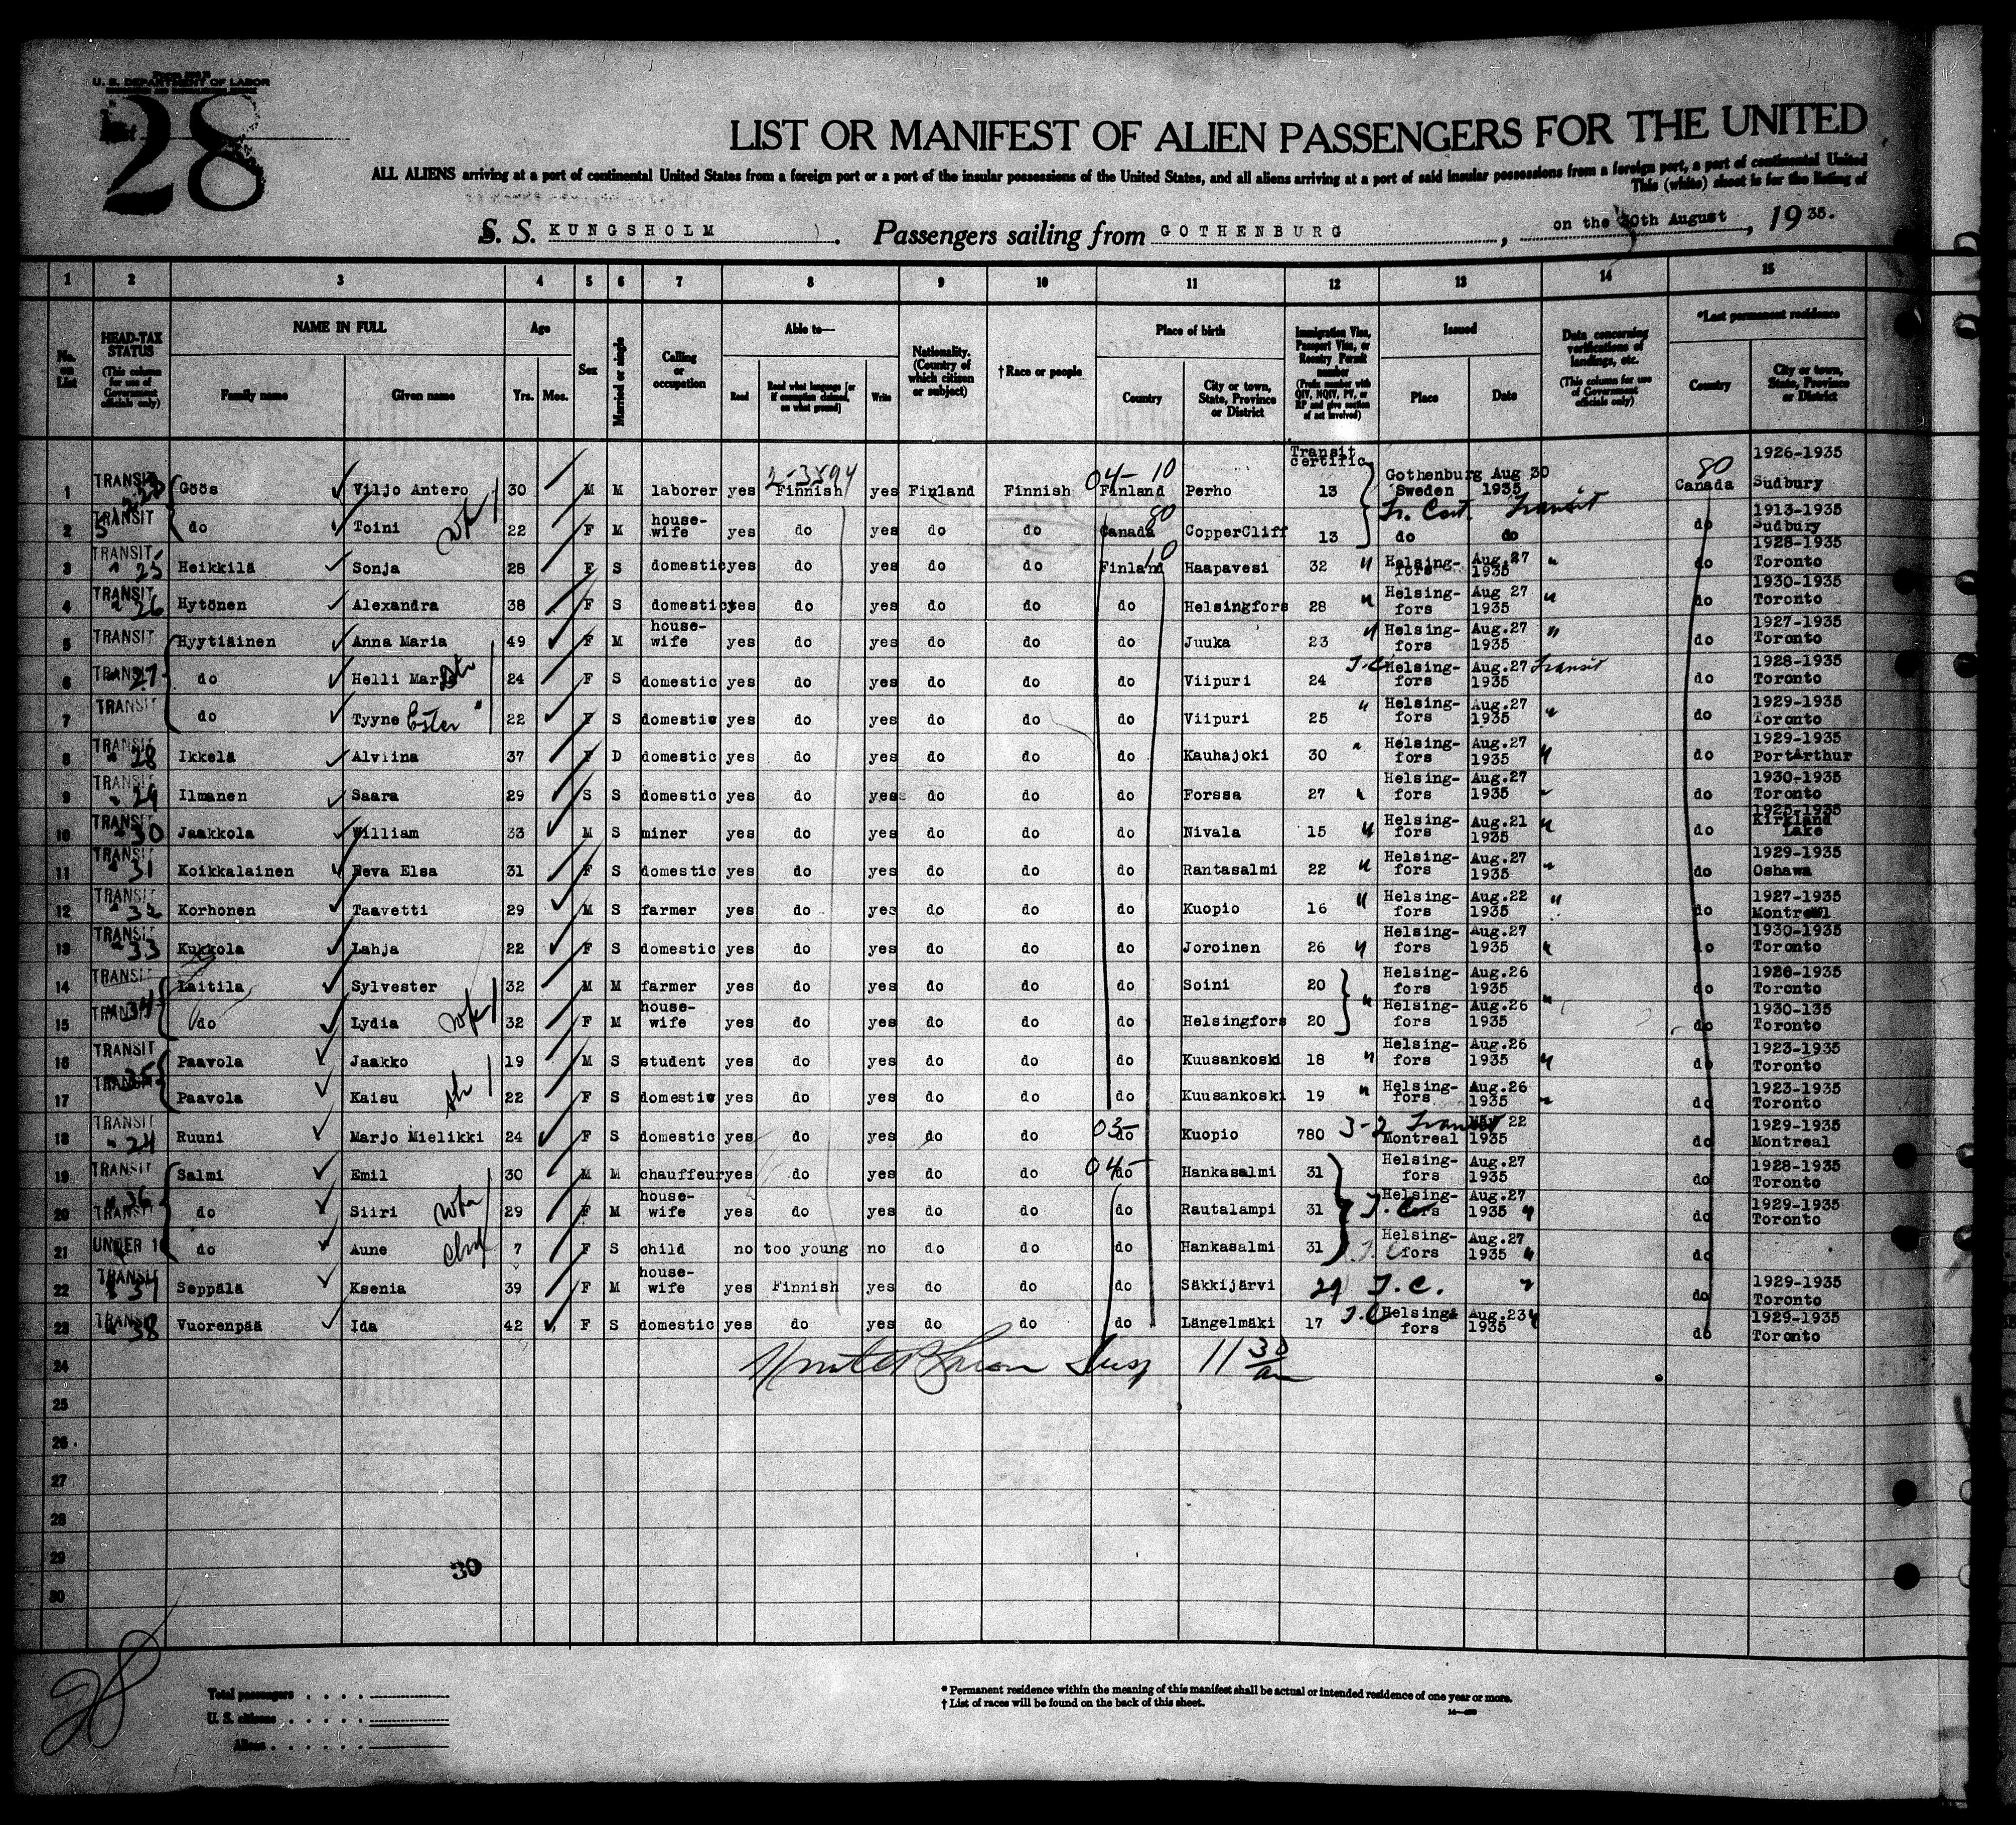 Form 500 B
U. S. DEPARTMENT OF LABOR
List 28
LIST OR MANIFEST OF ALIEN PASSENGERS FOR THE UNITED
ALL ALIENS arriving at a port of continental United States from a foreign port or a port of the insular possessions of the United States, and all aliens arriving at a port of said insular possessions from a foreign port, a port of continental United
This (white) sheet is for the listing of
S. S. KUNGSHOLM . Passengers sailing from GOTHENBURG , on the 30th August , 19 35.
1 2 3 4 5 6 7 8 9 10 11 12 13 14 15
No. on List
HEAD-TAX STATUS (This column for use of Government officials only)
NAME IN FULL Family name Given name
Age Yrs. Mos.
Sex
Married or single
Calling or occupation
Able to— Read Read what language [or if exemption claimed, on what ground] Write
Nationality. (Country of which citizen or subject)
†Race or people
Place of birth Country City or town, State, Province or District
Immigration Visa, Passport Visa, or Reentry Permit number (Prefix number with QIV, NQIV, PV, or RP and give section of act involved)
Issued Place Date
Data concerning verifications of landings, etc. (This column for use of Government officials only)
*Last permanent residence Country City or town, State, Province or District
Transit certific.
2-3594 04- 10 80
1 TRANSIT Göös Viljo Antero 30 M M laborer yes Finnish yes Finland Finnish Finland Perho 13 Gothenburg Sweden Aug 30 1935 Canada 1926-1935 Sudbury
Tr. Cert. Transit
2 TRANSIT do Toini 22 F M house-wife yes do yes do do Canada 80 CopperCliff 13 do do do 1913-1935 Sudbury
3 TRANSIT 25 Heikkilä Sonja 28 F S domestic yes do yes do do Finland 10 Haapavesi 32 " Helsing-fors Aug.27 1935 " do 1928-1935 Toronto
4 TRANSIT 26 Hytönen Alexandra 38 F S domestic yes do yes do do do Helsingfors 28 " Helsing-fors Aug 27 1935 " do 1930-1935 Toronto
5 TRANSIT Hyytiäinen Anna Maria 49 F M house-wife yes do yes do do do Juuka 23 " Helsing-fors Aug.27 1935 " do 1927-1935 Toronto
6 TRANSIT 27 do Helli 24 F S domestic yes do yes do do do Viipuri 24 T.C. Helsing-fors Aug.27 1935 Transit do 1928-1935 Toronto
7 TRANSIT do Tyyne Ester " 22 F S domestic yes do yes do do do Viipuri 25 " Helsing-fors Aug.27 1935 " do 1929-1935 Toronto
8 TRANSIT 28 Ikkelä Alviina 37 F D domestic yes do yes do do do Kauhajoki 30 " Helsing-fors Aug.27 1935 " do 1929-1935 PortArthur
9 TRANSIT 29 Ilmanen Saara 29 S S domestic yes do yes do do do Forssa 27 " Helsing-fors Aug.27 1935 " do 1930-1935 Toronto
10 TRANSIT 30 Jaakkola William 33 M S miner yes do yes do do do Nivala 15 " Helsing-fors Aug.21 1935 " do 1925-1935 Kirkland Lake
11 TRANSIT 31 Koikkalainen Eeva Elsa 31 F S domestic yes do yes do do do Rantasalmi 22 " Helsing-fors Aug.27 1935 " do 1929-1935 Oshawa
12 TRANSIT 32 Korhonen Taavetti 29 M S farmer yes do yes do do do Kuopio 16 " Helsing-fors Aug.22 1935 " do 1927-1935 Montreal
13 TRANSIT 33 Kukkola Lahja 22 F S domestic yes do yes do do do Joroinen 26 " Helsing-fors Aug.27 1935 " do 1930-1935 Toronto
14 TRANSIT Laitila Sylvester 32 M M farmer yes do yes do do do Soini 20 Helsing-fors Aug.26 1935 do 1928-1935 Toronto
15 TRANSIT 34 do Lydia 32 F M house-wife yes do yes do do do Helsingfors 20 " Helsing-fors Aug.26 1935 " do 1930-135 Toronto
16 TRANSIT Paavola Jaakko 19 M S student yes do yes do do do Kuusankoski 18 " Helsing-fors Aug.26 1935 " do 1923-1935 Toronto
17 TRANSIT 35 Paavola Kaisu 22 F S domestic yes do yes do do do Kuusankoski 19 " Helsing-fors Aug.26 1935 " do 1923-1935 Toronto
18 TRANSIT 24 Ruuni Marjo Mielikki 24 F S domestic yes do yes do do 03- do Kuopio 780 3-2 Transit Montreal 22 1935 do 1929-1935 Montreal
19 TRANSIT Salmi Emil 30 M M chauffeur yes do yes do do 04- do Hankasalmi 31 Helsing-fors Aug.27 1935 do 1928-1935 Toronto
20 TRANSIT 36 do Siiri 29 F M house-wife yes do yes do do do Rautalampi 31 T.C. Helsing-fors Aug.27 1935 " do 1929-1935 Toronto
21 UNDER 16 do Aune 7 F S child no too young no do do do Hankasalmi 31 T.C. Helsing-fors Aug.27 1935 " do
22 TRANSIT 37 Seppälä Ksenia 39 F M house-wife yes Finnish yes do do do Säkkijärvi 29 T.C. " do 1929-1935 Toronto
23 TRANSIT 38 Vuorenpää Ida 42 F S domestic yes do yes do do do Längelmäki 17 T.C. Helsing-fors Aug.23 1935 " do 1929-1935 Toronto
24 11 30 am
25
26
27
28
29
30
30
28
Total passengers
U. S. citizens
Aliens
* Permanent residence within the meaning of this manifest shall be actual or intended residence of one year or more.
† List of races will be found on the back of this sheet.